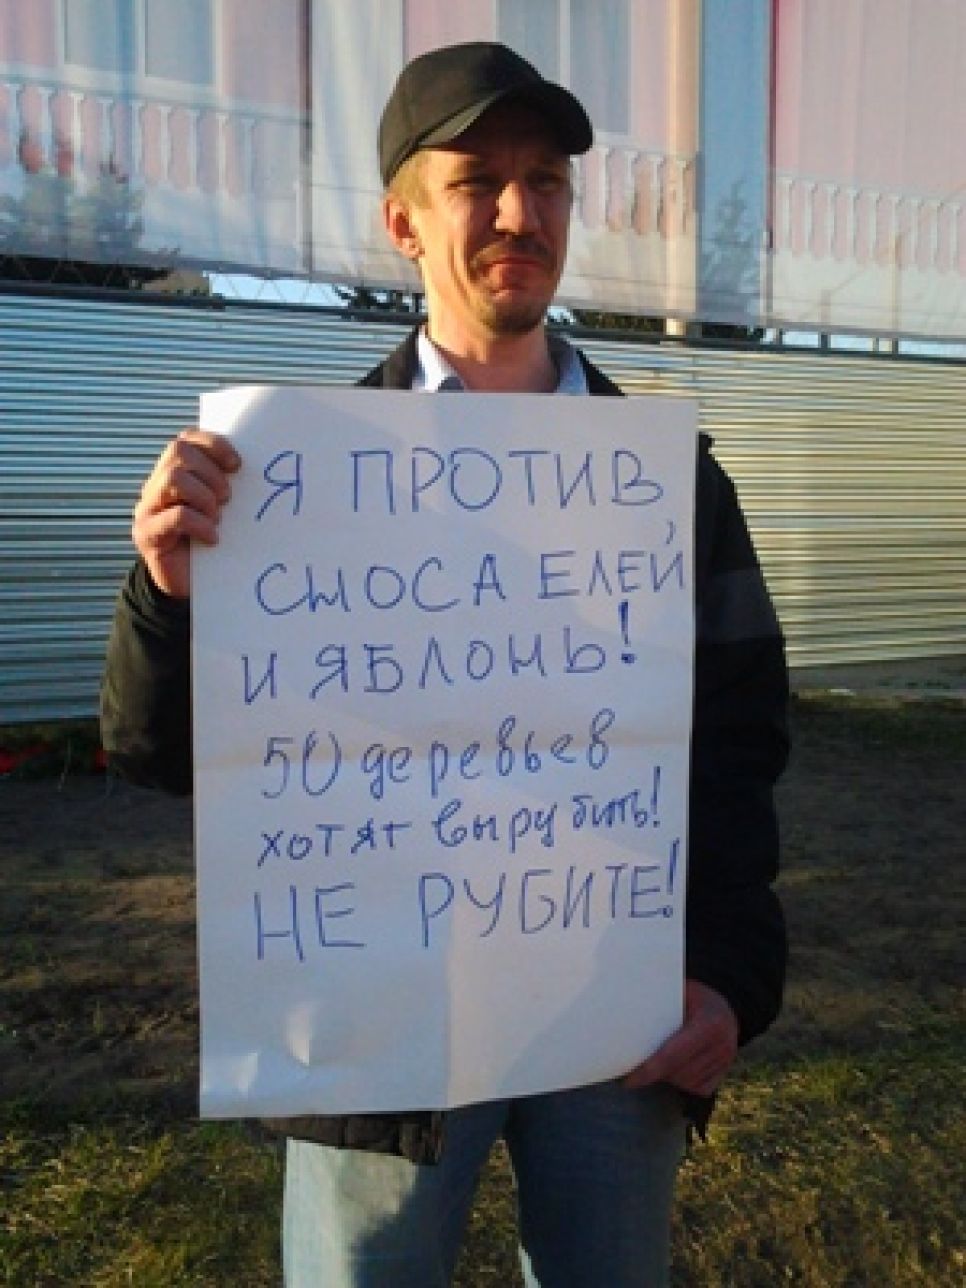 Я ПРОТИВ,
СНОСА ЕЛЕЙ
И ЯБЛОНЬ!
50 деревьев
хотят вырубить!
НЕ РУБИТЕ!